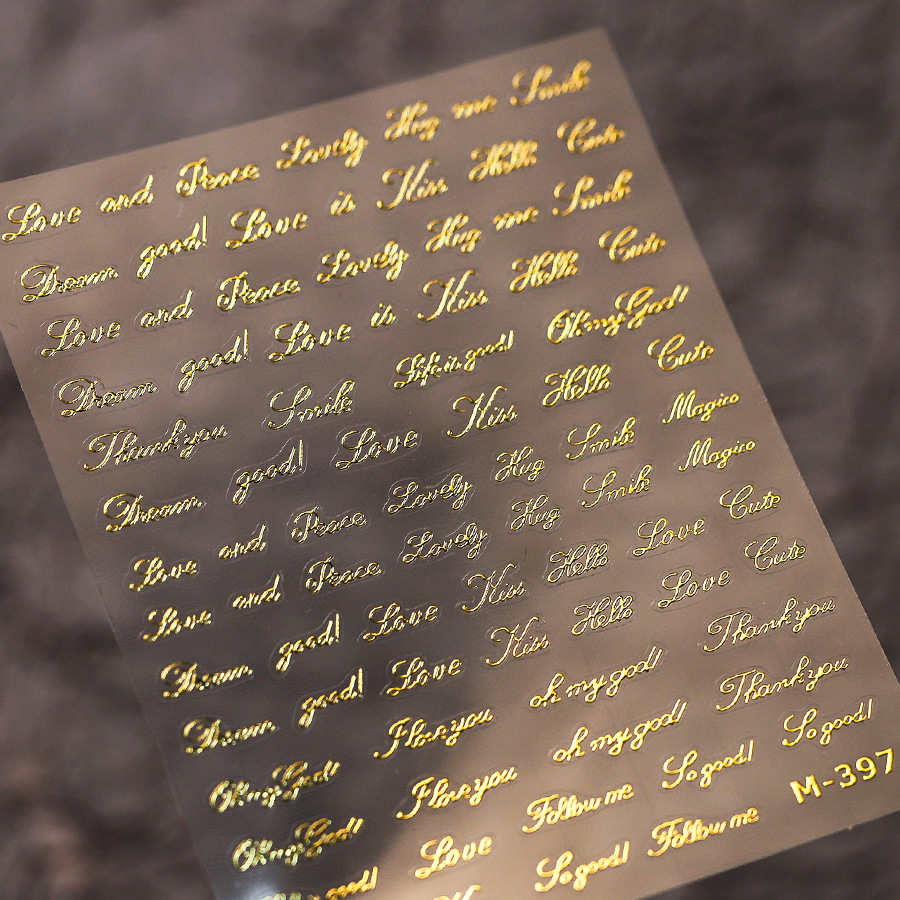 Love and Peace Lovely Hug me Smile
Dream good! Love is Kiss Hello Cute
Love and Peace Lovely Hug me Smile
Dream good! Love is Kiss Hello Cute
Thank you Smile Life is good! Oh my God!
Dream good! Love Kiss Hello Cute
Love and Peace Lovely Hug Smile Magico
Love and Peace Lovely Hug Smile Magico
Dream good! Love Kiss Hello Love Cute
Dream good! Love Kiss Hello Love Cute
Oh my God! I love you oh my god! Thank you
Oh my God! I love you oh my god! Thank you
good! Love Follow me So good! So good!
So good! Follow me M-397